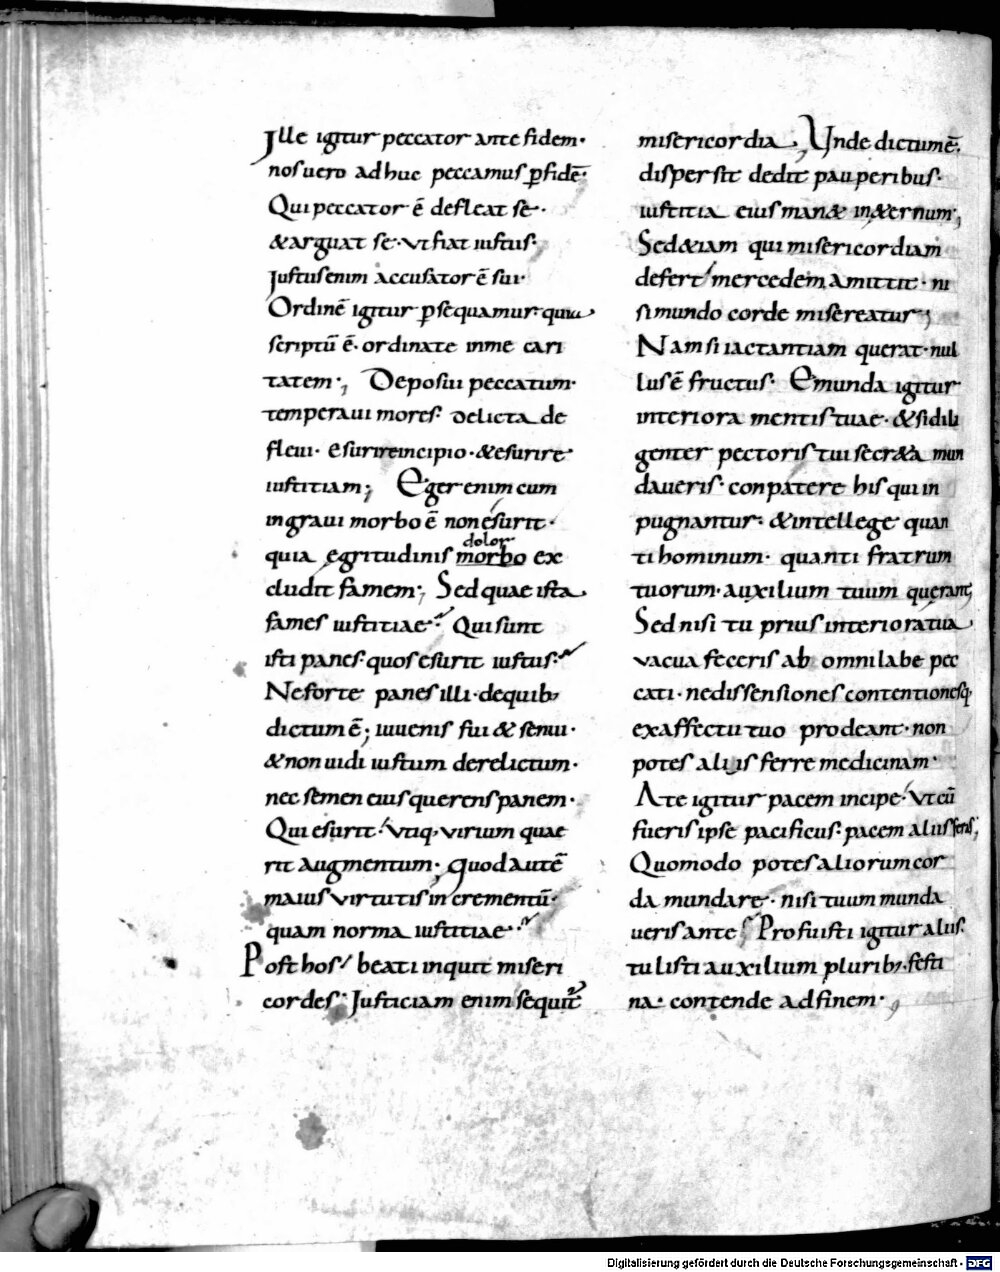 Ille igitur peccator ante fidem·
nos uero adhuc peccamus p̱ fidē·
Qui peccator ē defleat se·
& arguat se· vt fiat iustus·
Iustus enim accusator ē sui·
Ordinē igitur p̱sequamur· quia
scriptū ē· ordinate in me cari
tatem·, Deposui peccatum·
temperaui mores· delicta de
fleui· esurire incipio· & esurire
iustitiam; Eger enim cum
in graui morbo ē non esurit·
quia egritudinis morbo ex
dolor
cludit famem·, Sed quae ista
fames iustitiae· Qui sunt
isti panes· quos esurit iustus·
Ne forte panes illi· de quib;
dictum ē; iuuenis fui & senui·
& non uidi iustum derelictum·
nec semen eius querens panem·
Qui esurit· vtiq; virium quae
rit augmentum· quod autē
maius virtutis incrementū·
quam norma iustitiae·
Post hos beati inquit miseri
cordes· Iusticiam enim sequit̄
misericordia, Unde dictum ē,
dispersit dedit pauperibus·
iustitia eius man& in &ernum,
Sed &iam qui misericordiam
defert mercedem amittit· ni
si mundo corde misereatur;
Nam si iactantiam querat· nul
lus ē fructus· Emunda igitur
interiora mentis tuae· & si dili
genter pectoris tui secr&a mun
daueris· conpatere his qui in
pugnantur· & intellege quan
ti hominum· quanti fratrum
tuorum· auxilium tuum querant,
Sed nisi tu prius interiora tua
vacua feceris ab omni labe pec
cati· ne dissensiones contentionesq;
ex affectu tuo prodeant· non
potes aliis ferre medicinam·
A te igitur pacem incipe· vt cū
fueris ipse pacificus· pacem aliis feras;
Quomodo potes aliorum cor
da mundare· nisi tuum munda
ueris ante Profuisti igitur aliis·
tulisti auxilium plurib;· festi
na· contende ad finem·,
Digitalisierung gefördert durch die Deutsche Forschungsgemeinschaft · DFG